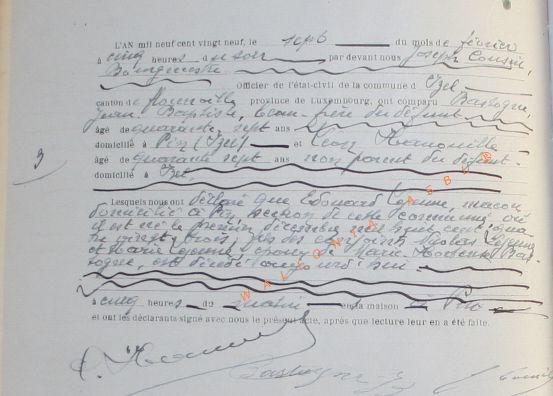 L'AN mil neuf cent vingt neuf, le sept du mois de février
à cinq heures du soir par devant nous Joseph
Bourgmestre
Officier de l'état-civil de la commune d'Izel
canton de Florenville province de Luxembourg, ont comparu Bastogne,
Jean Baptiste, beau-frère du défunt
âgé de quarante sept ans
domicilié à Pin (Izel) et Léon
âgé de quarante sept ans non parent du défunt
domicilié à Izel
3
Lesquels nous ont déclaré que Edouard Lejeune, maçon
domicilié à Pin, section de cette commune, où
il est né le premier décembre mil huit cent quatre
vingt trois, fils des conjoints Nicolas Lejeune
et Marie époux de Marie Bas-
togne, est décédé aujourd'hui
à cinq heures du matin en sa maison à Pin
et ont les déclarants signé avec nous le présent acte, après que lecture leur en a été faite.
Bastogne J.B.
WALLONIA ASBL